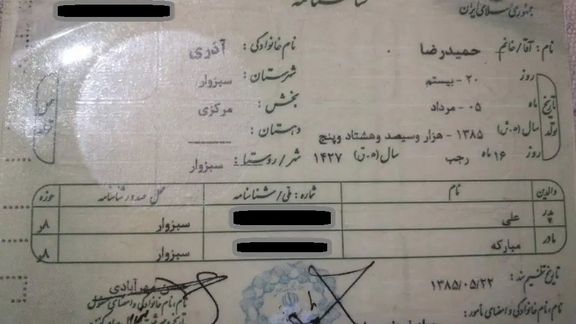 شناسنامه
جمهوری اسلامی ایران
نام: آقا/خانم حمیدرضا نام خانوادگی: آذری
روز ۲۰ - بیستم شهرستان: سبزوار
تاریخ تولد
ماه ۰۵ - مرداد بخش: مرکزی
سال (ه.ش) ۱۳۸۵ - هزار و سیصد و هشتاد و پنج دهستان:
روز ۱۶ ماه رجب سال (ه.ق) ۱۴۲۷ شهر/روستا: سبزوار
محل تولد
والدین نام شماره: ملی/شناسنامه محل صدور شناسنامه حوزه
پدر علی سبزوار
مادر مبارکه سبزوار
تاریخ تنظیم سند: ۱۳۸۵/۰۵/۲۲
مهرآبادی
نام، نام خانوادگی و امضای
نام خانوادگی و امضای مأمور: